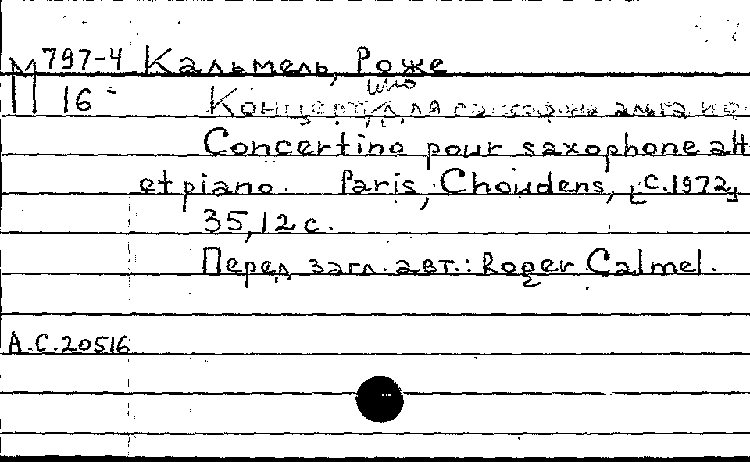 М 797-4 Кальмель, Роже
16 Концертино для саксофона альта и ф
Concertino pour saxophone alt
et piano. Paris, Choudens, [c.1972]
35,12 с.
Перед загл. авт.: Roger Calmel.
А.С.20516